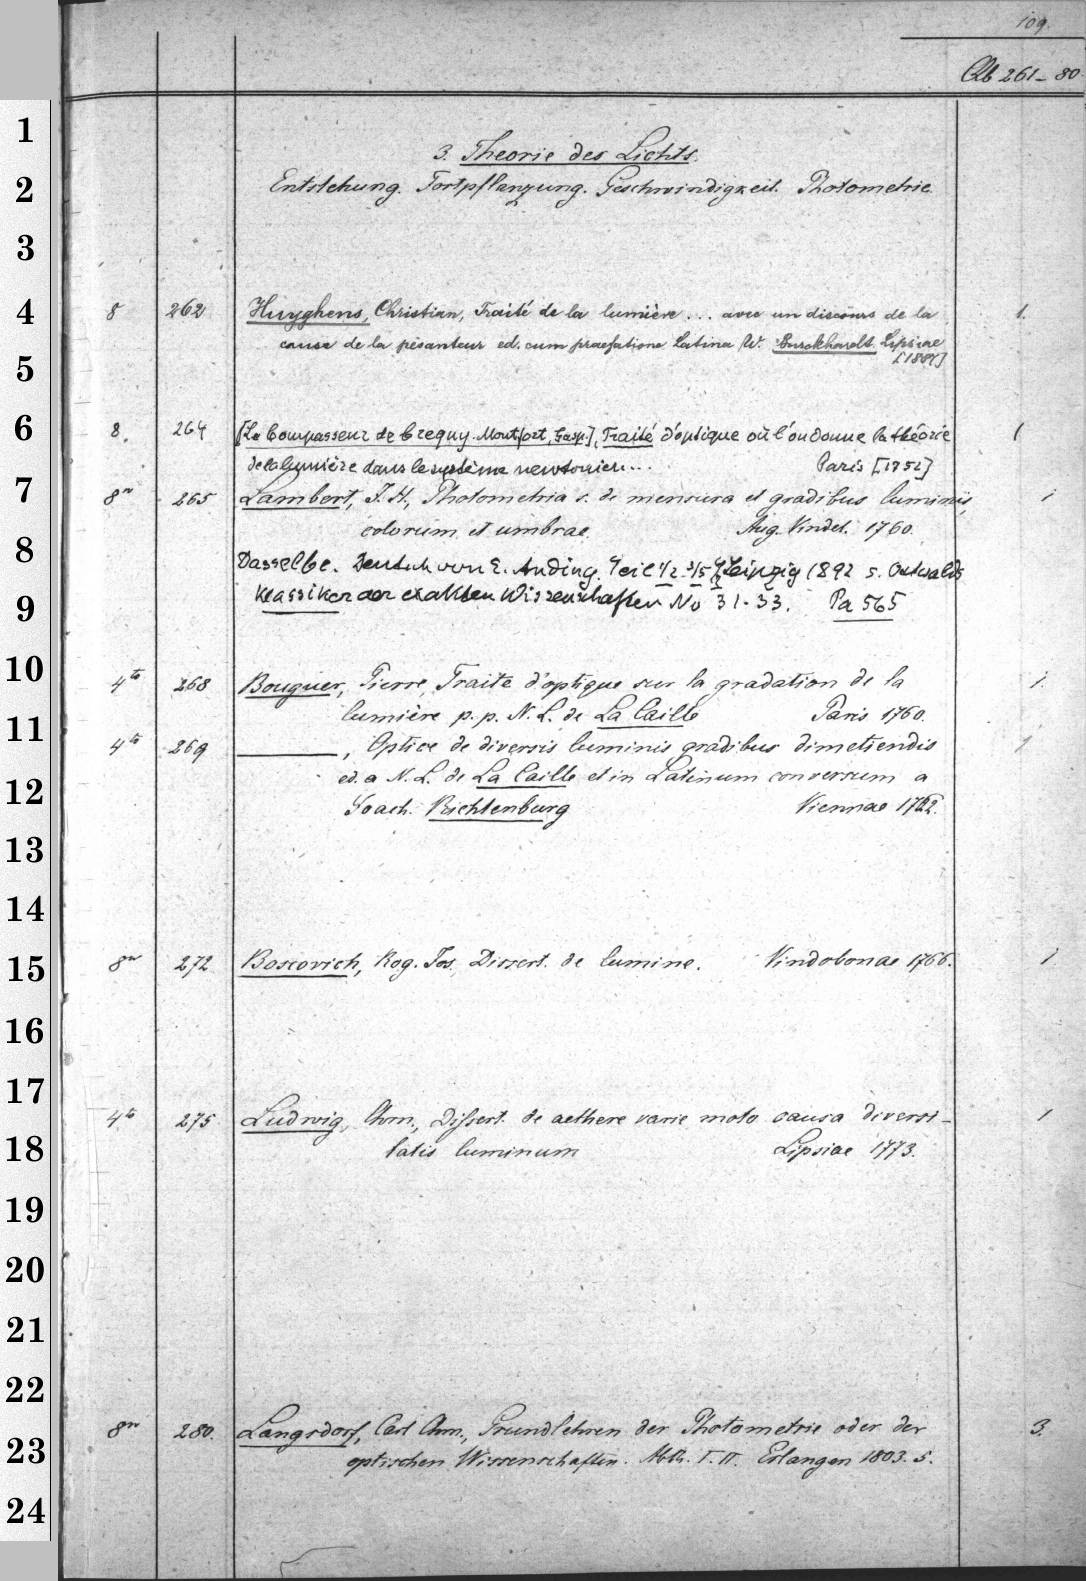 109.
Qb 261-80
3. Theorie des Lichts.
Entstehung. Fortpflanzung. Geschwindigkeit. Photometrie.
8 262 Huyghens, Christian, Traité de la lumière ... avec un discours de la 1.
cause de la pesanteur ed. cum praefatione Latina W. Burckhardt. Lipsiae
[1885]
8. 264 [Le Compasseur de Crequy-Montfort, Gasp.], Traité d'optique où l'on donne la théorie 1
de la lumière dans le système newtonien... Paris [1752]
8° 265 Lambert, J. H., Photometria s. de mensura et gradibus luminis, 1
colorum et umbrae. Aug. Vindel. 1760.
Dasselbe. Deutsch von E. Anding. Teil 1/2 3/5 6/7 Leipzig 1892 s. Ostwalds
Klassiker der exakten Wissenschaften No 31-33. Pa 565
4to 268 Bouguer, Pierre, Traité d'optique sur la gradation de la 1.
lumière p. p. N. L. de La Caille Paris 1760.
4to 269 ———, Optice de diversis luminis gradibus dimetiendis 1
ed. a N. L. de La Caille et in Latinum conversum a
Joach. Richtenburg Viennae 1762.
8vo 272 Boscovich, Rog. Jos. Dissert. de lumine. Vindobonae 1766. 1
4to 275 Ludwig, Chrn., Dissert. de aethere varie moto causa diversi- 1
tatis luminum Lipsiae 1773.
8vo 280. Langsdorf, Carl Chrn., Grundlehren der Photometrie oder der 3.
optischen Wissenschaften. Abth. I. II. Erlangen 1803. 5.
1
2
3
4
5
6
7
8
9
10
11
12
13
14
15
16
17
18
19
20
21
22
23
24